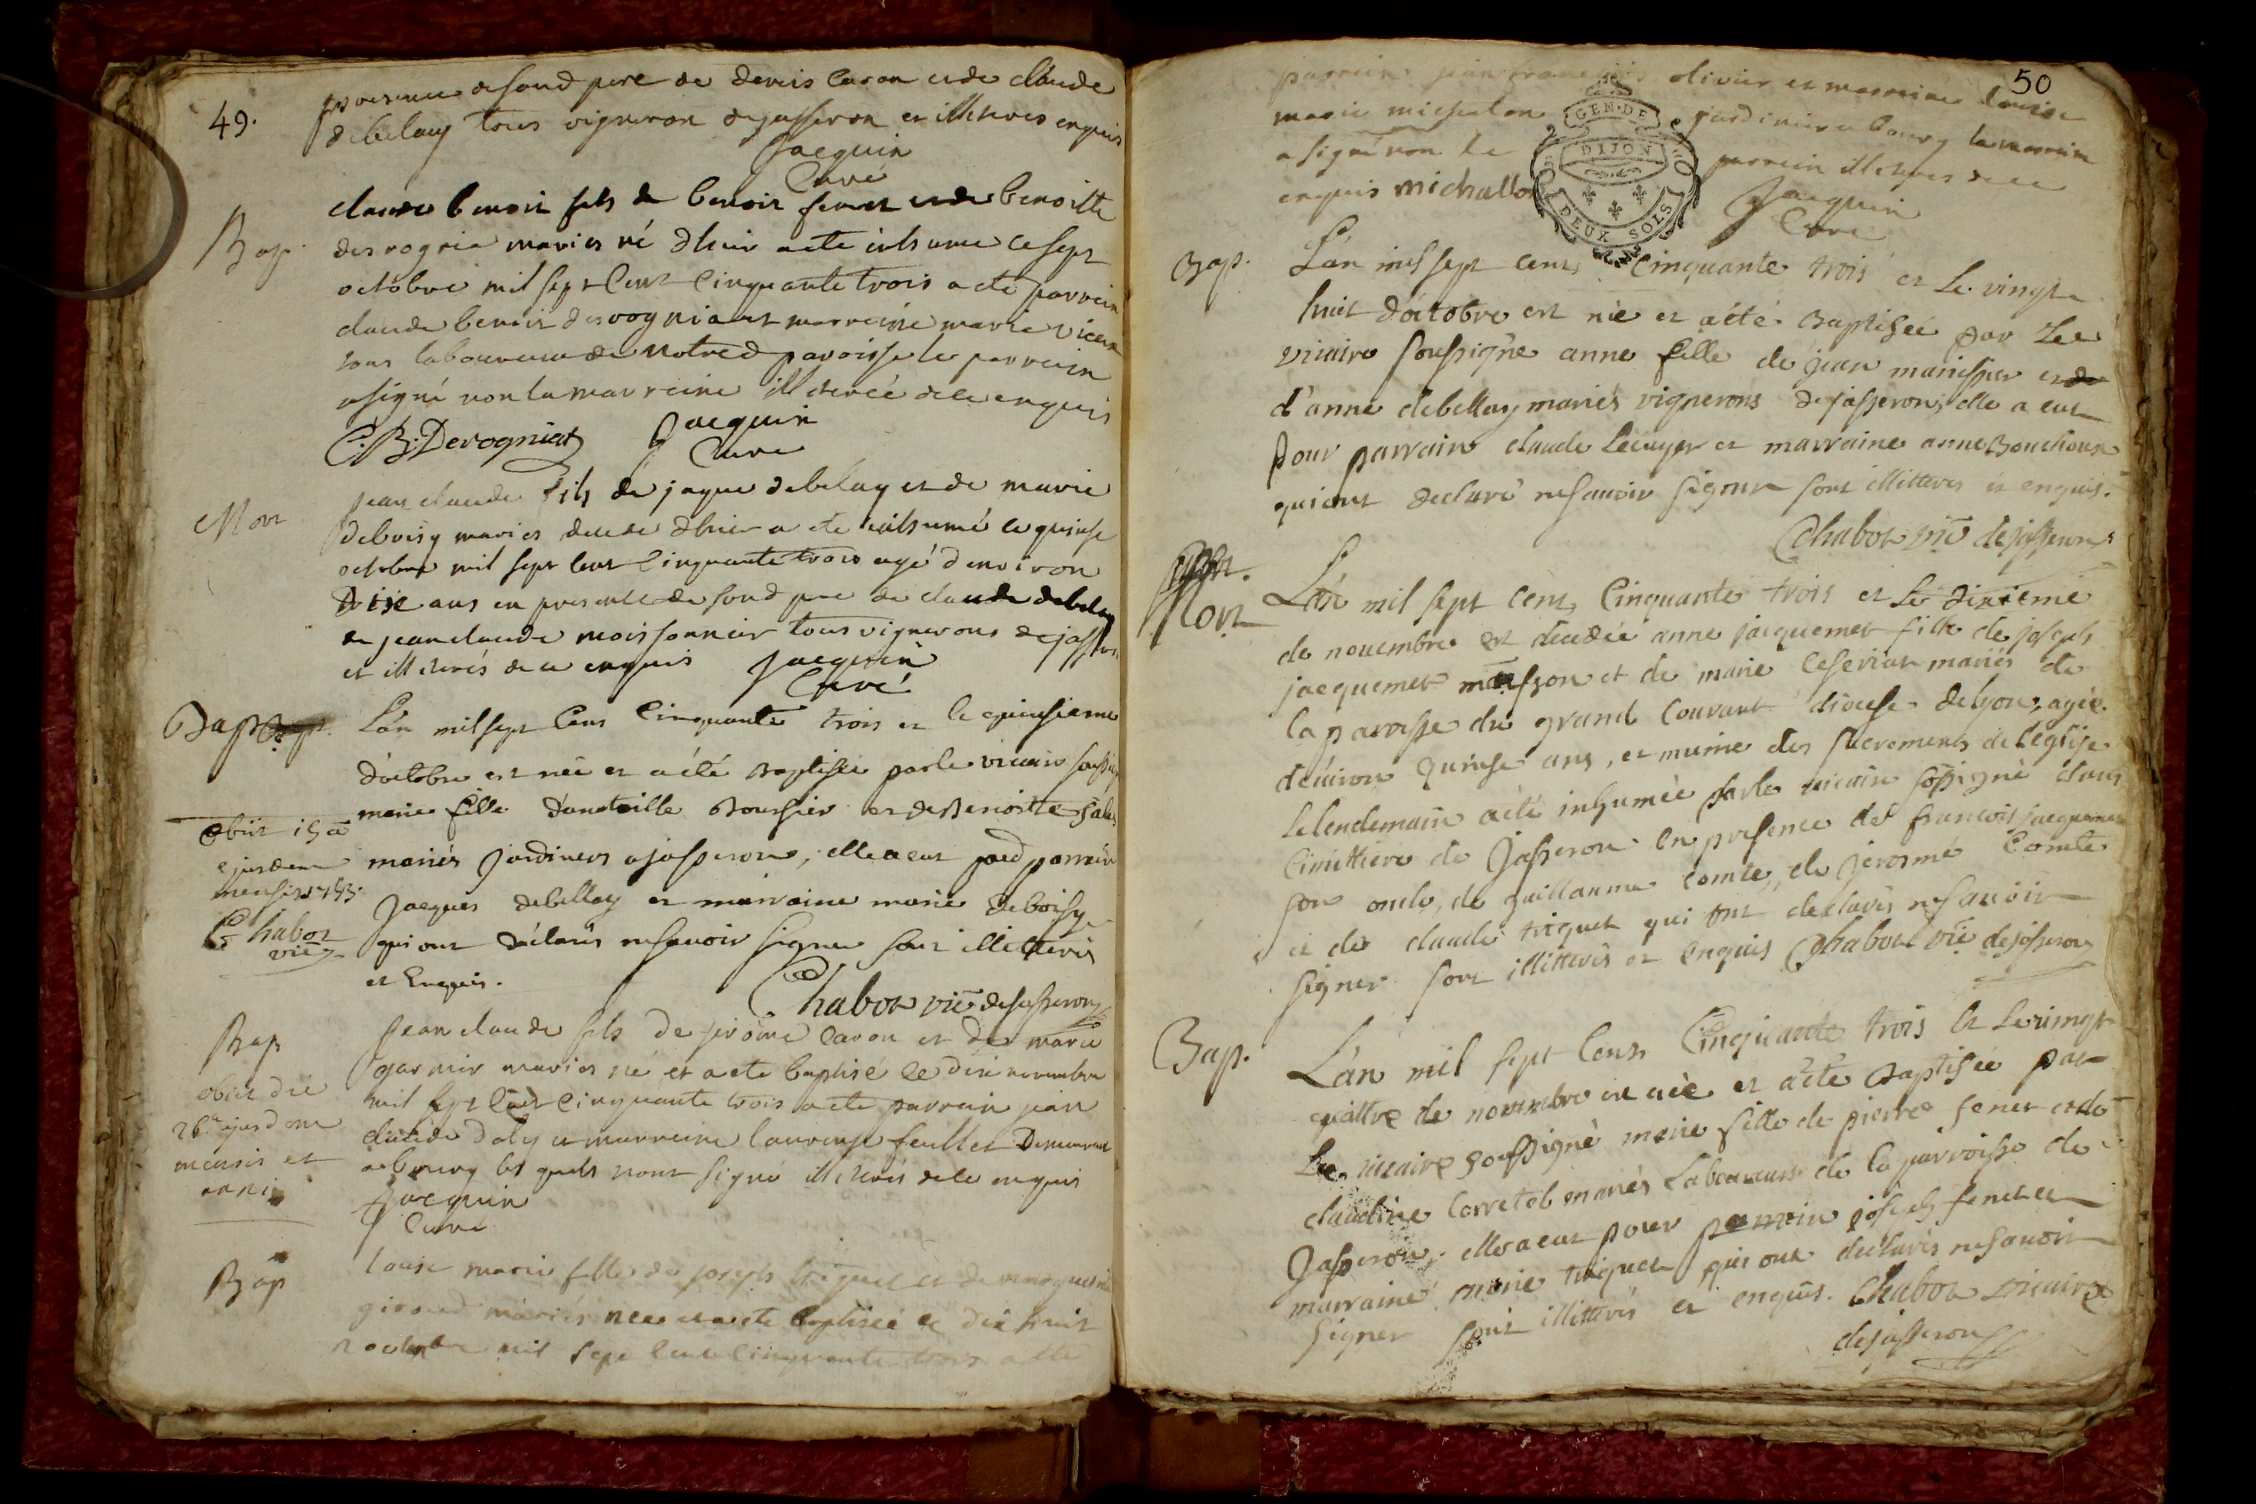 49.
presence de son d pere de denis caron et de claude
debelay tous vigneron de jasseron et illiterés enquis
Jacquin
Curé
Bap.
claude benoit fils de benoit fenet et de benoitte
desvognia mariés né d'hier a eté ce sept
octobre mil sept cent cinquante trois a eté parrein
claude benoit desvognia et marreine marie
tous laboureurs de notre d paroisse le parrein
a signé non la marreine illiterée de ce enquis
C. B. Derogniat Jacquin
Curé
Mort
jean claude fils de jaque debelay et de marie
deboisy mariés decedé d'hier a eté inhumé ce quinse
octobre mil sept cent cinquante trois agé d'environ
treise ans en presence de son d pere de claude debelay
de jean claude moissonnier tous vignerons de jasseron
et illiterés de ce enquis Jacquin
Curé
Bap
L'an mil sept cens cinquante trois et le quinsieme
d'octobre est née et a été Baptisée par le vicaire soussigné
marie fille d'anoteille Boussier et de Benoitte
Obiit 15a
ejusdem
mensis 1753.
Chabot
vic.
mariés jardiniers a jasseron, elle a eut pour parrain
Jacques debellay et marraine marie deboisy
qui ont déclarés ne savoir signer sont illiterés
et Enquis.
Chabot vic. de jasseron
Bap
obiit die
26a ejusdem
mensis et
anni
Jean claude fils de jerôme caron et de marie
garnier mariés né et a eté baptisé le dix novembre
mil sept cent cinquante trois a eté parrein jean
claude daly et marreine laurence feuillet Demeurant
a bourg les quels n'ont signé illiterés de ce enquis
Jacquin
Curé
Bap
louise marie fille de joseph triquet et de marguerite
giroud mariés née et a eté baptisée le dix huit
octobre mil sept cent cinquante trois a eté
50
parrein jean francois olivier et marreine louise
marie michalon jardinier a bourg la marreine
a signé non le parrein illiteré de ce
enquis michallon Jacquin
Curé
GEN. DE
DIJON
DEUX SOLS
Bap.
L'an mil sept cens cinquante trois et le vingt
huit d'octobre est née et a été Baptisée par Le
vicaire soussigné anne fille de jean manissier et de
d'anne debellay mariés vignerons de jasseron, elle a eut
pour parrain claude Lecuyer et marraine anne Bouchoux
qui ont declaré ne savoir signer sont illitterés et enquis.
Chabot vic. de jasseron
Mort
L'an mil sept cens cinquante trois et le dixième
de novembre est decedée anne jacquemet fille de joseph
jacquemet masson et de marie Ceseriat mariés de
la paroisse du grand Courant diocese de lyon, agée
d'environ quinse ans, et munie des sacrements de l'eglise
le lendemain a été inhumée par le vicaire soussigné dans le
cimittiere de Jasseron en presence de francois jacquemet
son oncle, de guillaume Comte, de jerosme Comte
et de claude triquet qui ont declarés ne savoir
signer sont illitterés et enquis Chabot vic. de jasseron
Bap.
L'an mil sept cens Cinquante trois et Le vingt
quattre de novembre est née et a été Baptisée par
Le vicaire soussigné marie fille de pierre fenet et de
claudine Corretel mariés Laboureurs de la parroisse de
Jasseron, elle a eut pour parrain joseph fenet et
marraine marie triquet qui ont declarés ne savoir
signer sont illitterés et enquis. Chabot vicaire
de jasseron